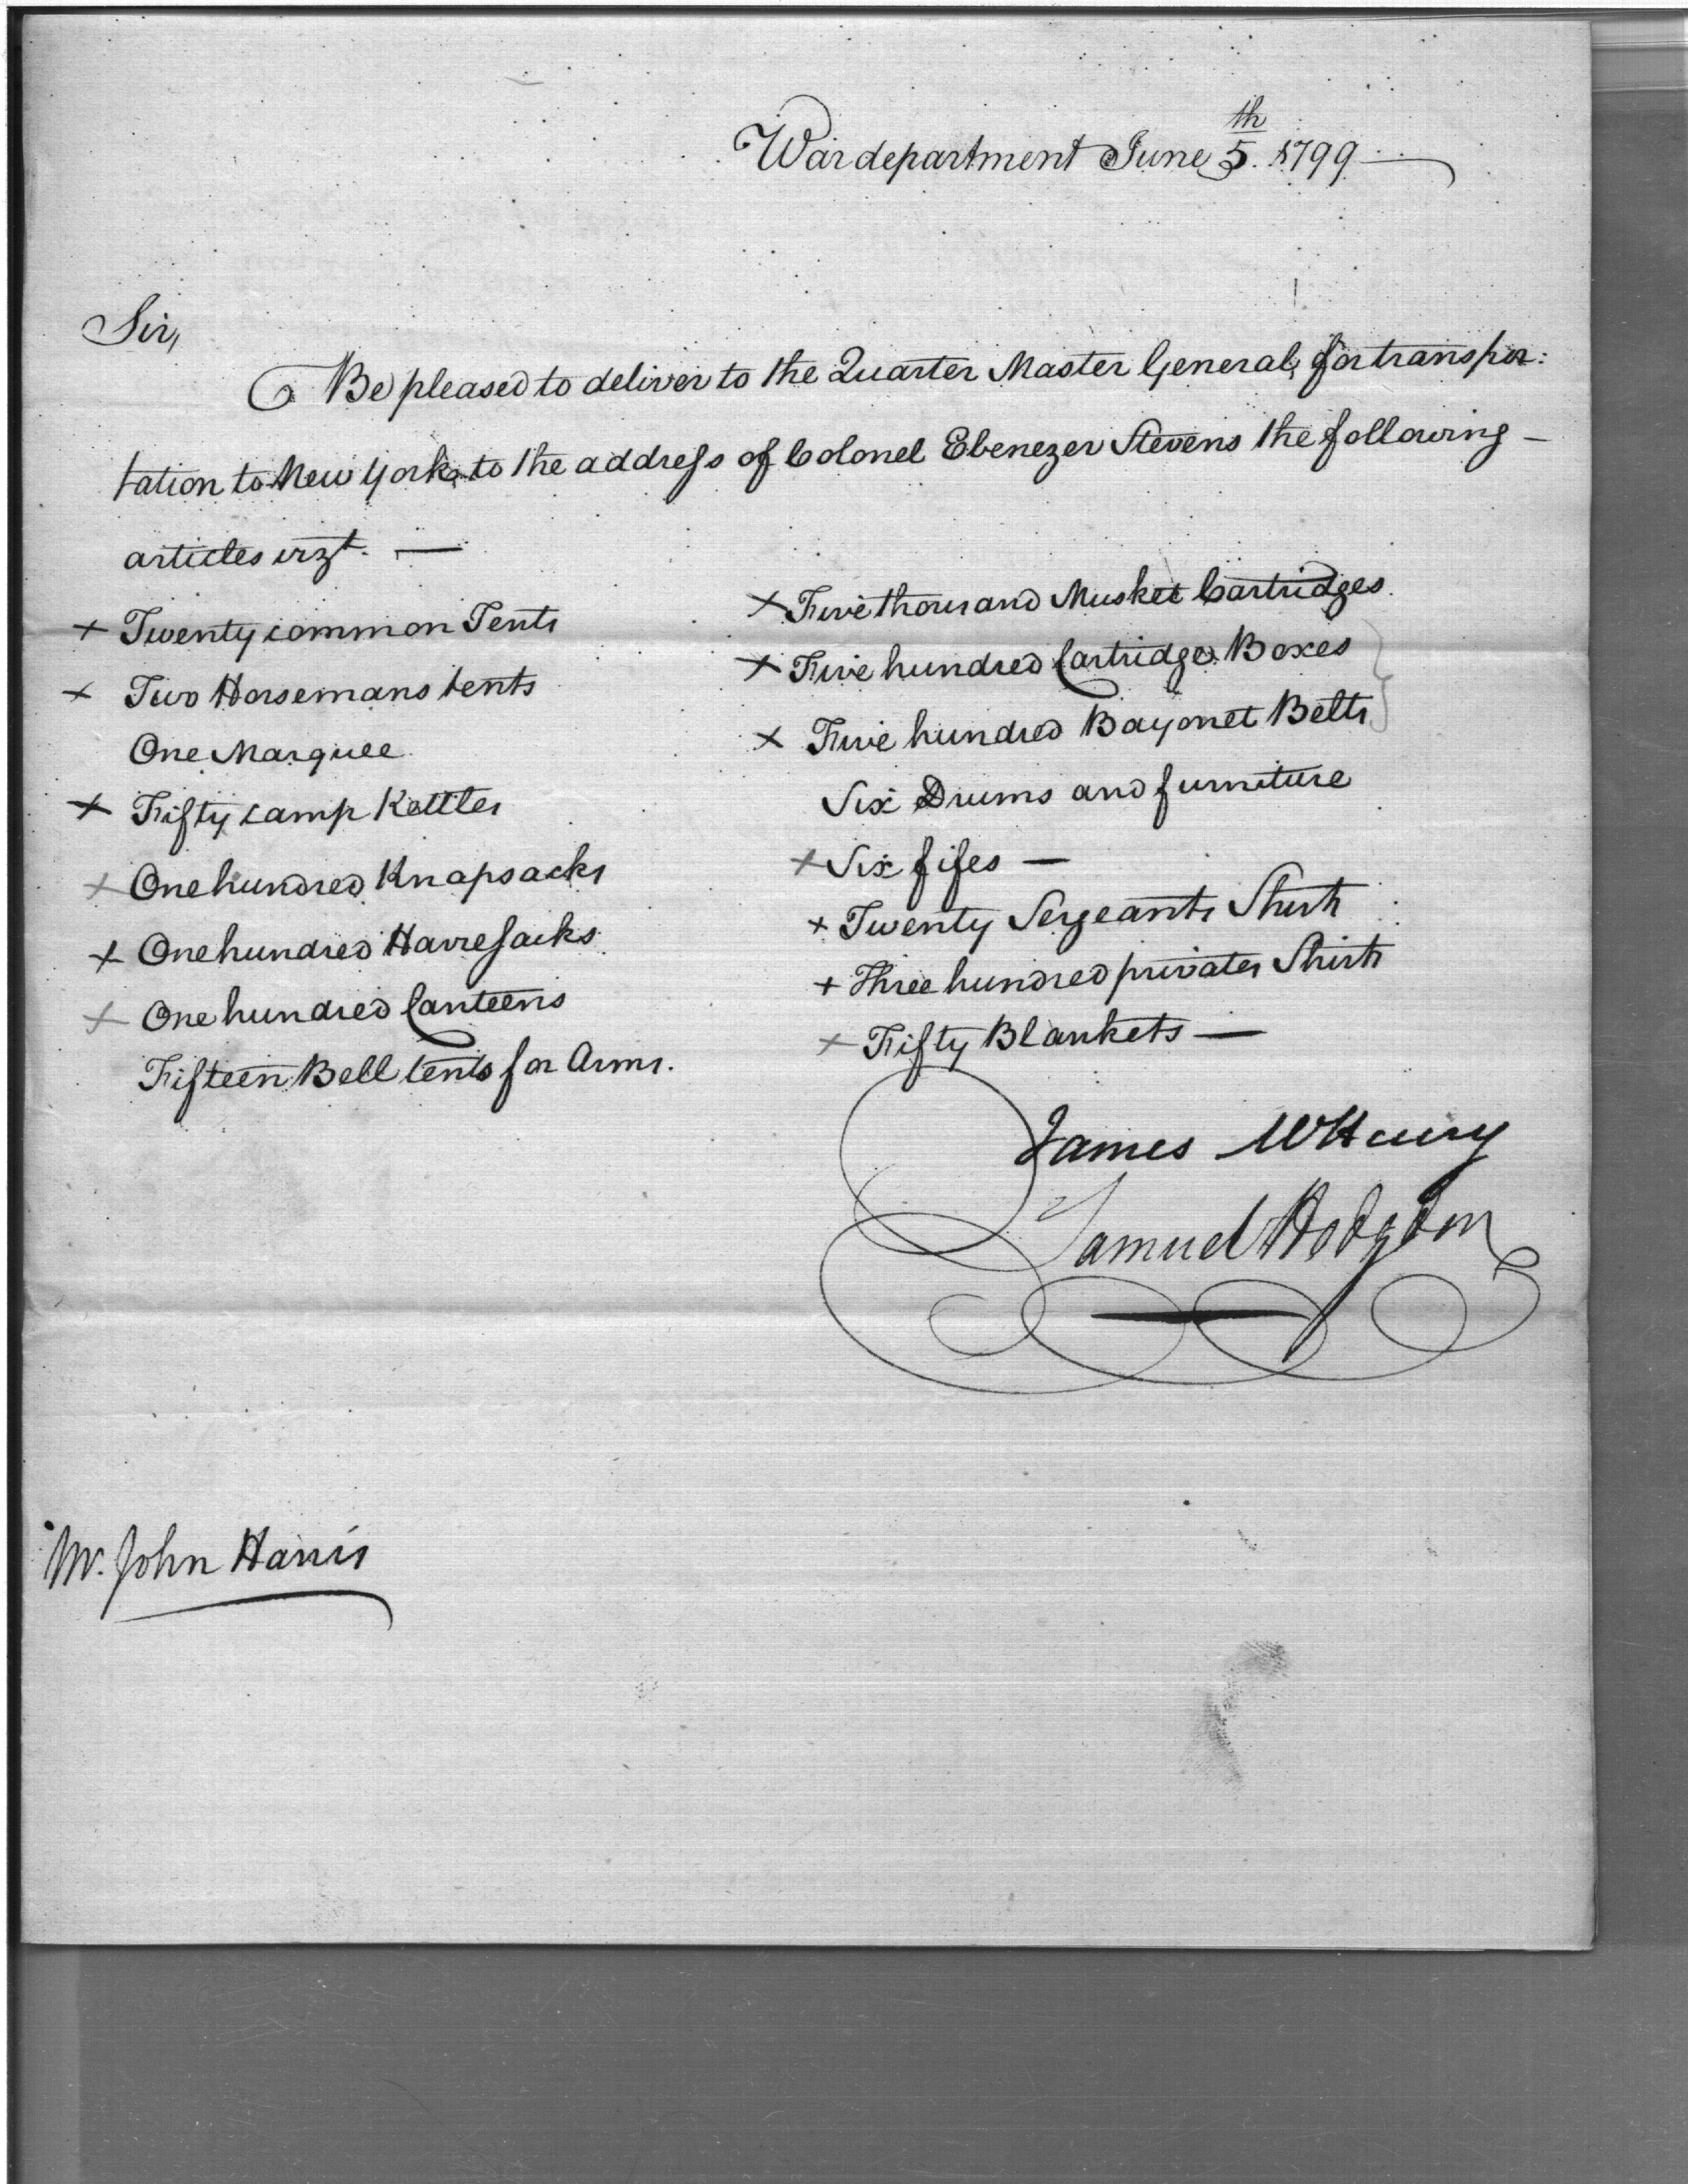 War department June 5th. 1799
Sir,
Be pleased to deliver to the Quarter Master General, for transpor:
tation to New York, to the address of Colonel Ebenezer Stevens the following –
articles vizt. —
+ Twenty common Tents
+ Two Horsemans tents
One Marquee
+ Fifty camp Kettles
+ One hundred Knapsacks
+ One hundred Havresacks
+ One hundred Canteens
Fifteen Bell tents for Arms.
+ Five thousand Musket Cartridges.
+ Five hundred Cartridge Boxes
+ Five hundred Bayonet Belts
Six Drums and furniture
+ Six fifes —
+ Twenty Sergeants Shirts
+ Three hundred privates Shirts
+ Fifty Blankets —
James McHenry
Samuel Hodgdon
Mr. John Harris